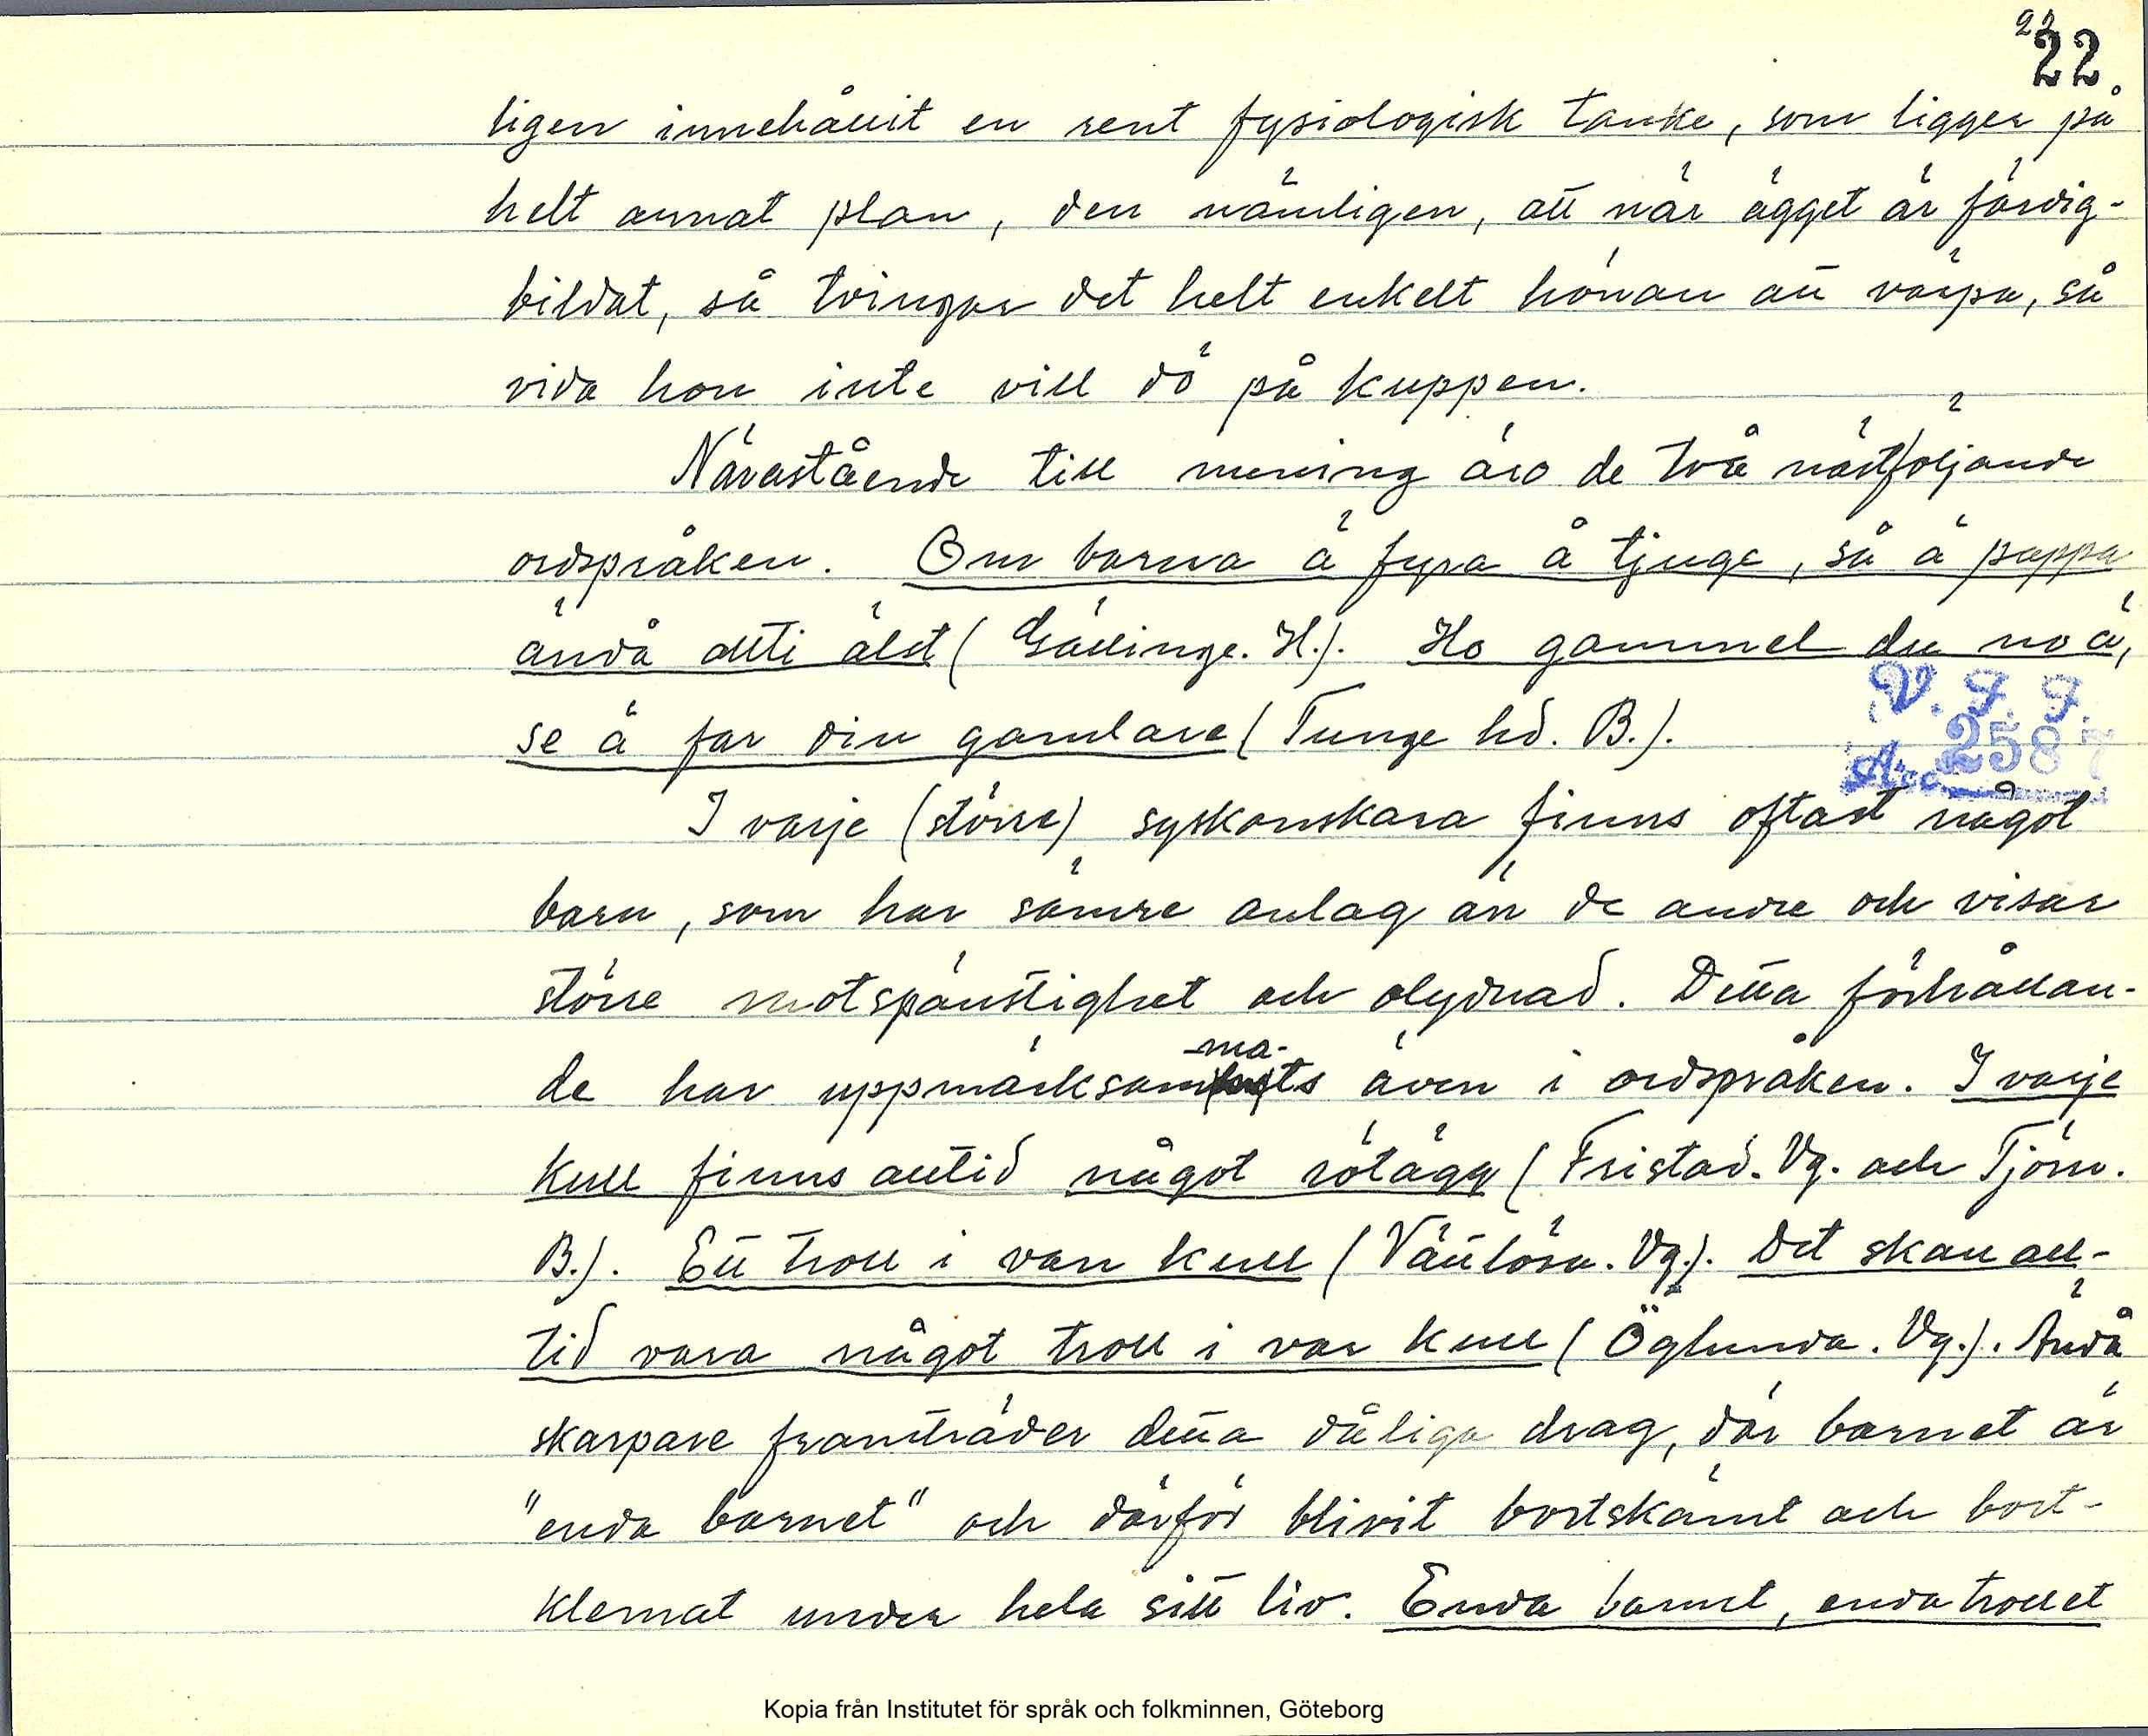 22
22
ligen innehållit en rent fysiologisk tanke, som ligger på
helt annat plan, den nämligen, att när ägget är färdig-
bildat, så tvingar det helt enkelt hönan att värpa, så
vida hon inte vill dö på kuppen.
Närastående till mening äro de två nästföljande
ordspråken. Om barna ä fyra å tjuge, så ä pappa
ändå allti älst (Gällinge. H.). Ho gammel du no ä,
se ä far din gamlare (Tunge hd. B.).
V. F. F.
Acc. 2587
I varje (större) syskonskara finns oftast något
barn, som har sämre anlag än de andre och visar
större motspänstighet och olydnad. Detta förhållan-
de har uppmärksammats även i ordspråken. I varje
kull finns alltid något rötägg (Fristad. Vg. och Tjörn.
B.). Ett troll i varr kull (Vättlösa. Vg.). Det skall all-
tid vara något troll i var kull (Öglunda. Vg.). Ändå
skarpare framträder detta dåliga drag, där barnet är
"enda barnet" och därför blivit bortskämt och bort-
klemat under hela sitt liv. Enda barnet, enda trollet
Kopia från Institutet för språk och folkminnen, Göteborg